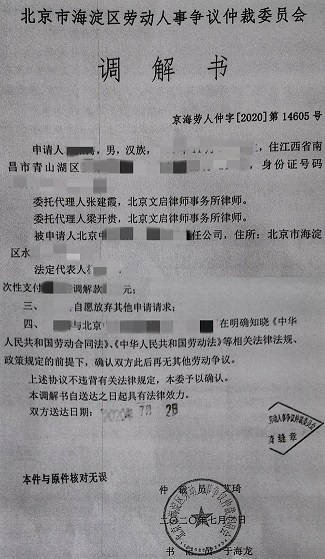 北京市海淀区劳动人事争议仲裁委员会
调解书
京海劳人仲字[2020]第14605号
申请人 ，男，汉族， 住江西省南
昌市青山湖区 ，身份证号码
委托代理人张建霞，北京文启律师事务所律师。
委托代理人梁开贵，北京文启律师事务所律师。
被申请人北京 任公司，住所：北京市海淀
区水
法定代表人
次性支付 调解款 元；
三、 自愿放弃其他申请请求；
四、 与北京 在明确知晓《中华
人民共和国劳动合同法》、《中华人民共和国劳动法》等相关法律法规、
政策规定的前提下，确认双方此后再无其他劳动争议。
上述协议不违背有关法律规定，本委予以确认。
本调解书自送达之日起具有法律效力。
双方送达日期：
劳动人事争议仲裁委员会
骑缝章
本件与原件核对无误
仲裁员 琦
二〇二〇年七月 日
北京市海淀区劳动人事争议仲裁委员会
书记员 于海龙